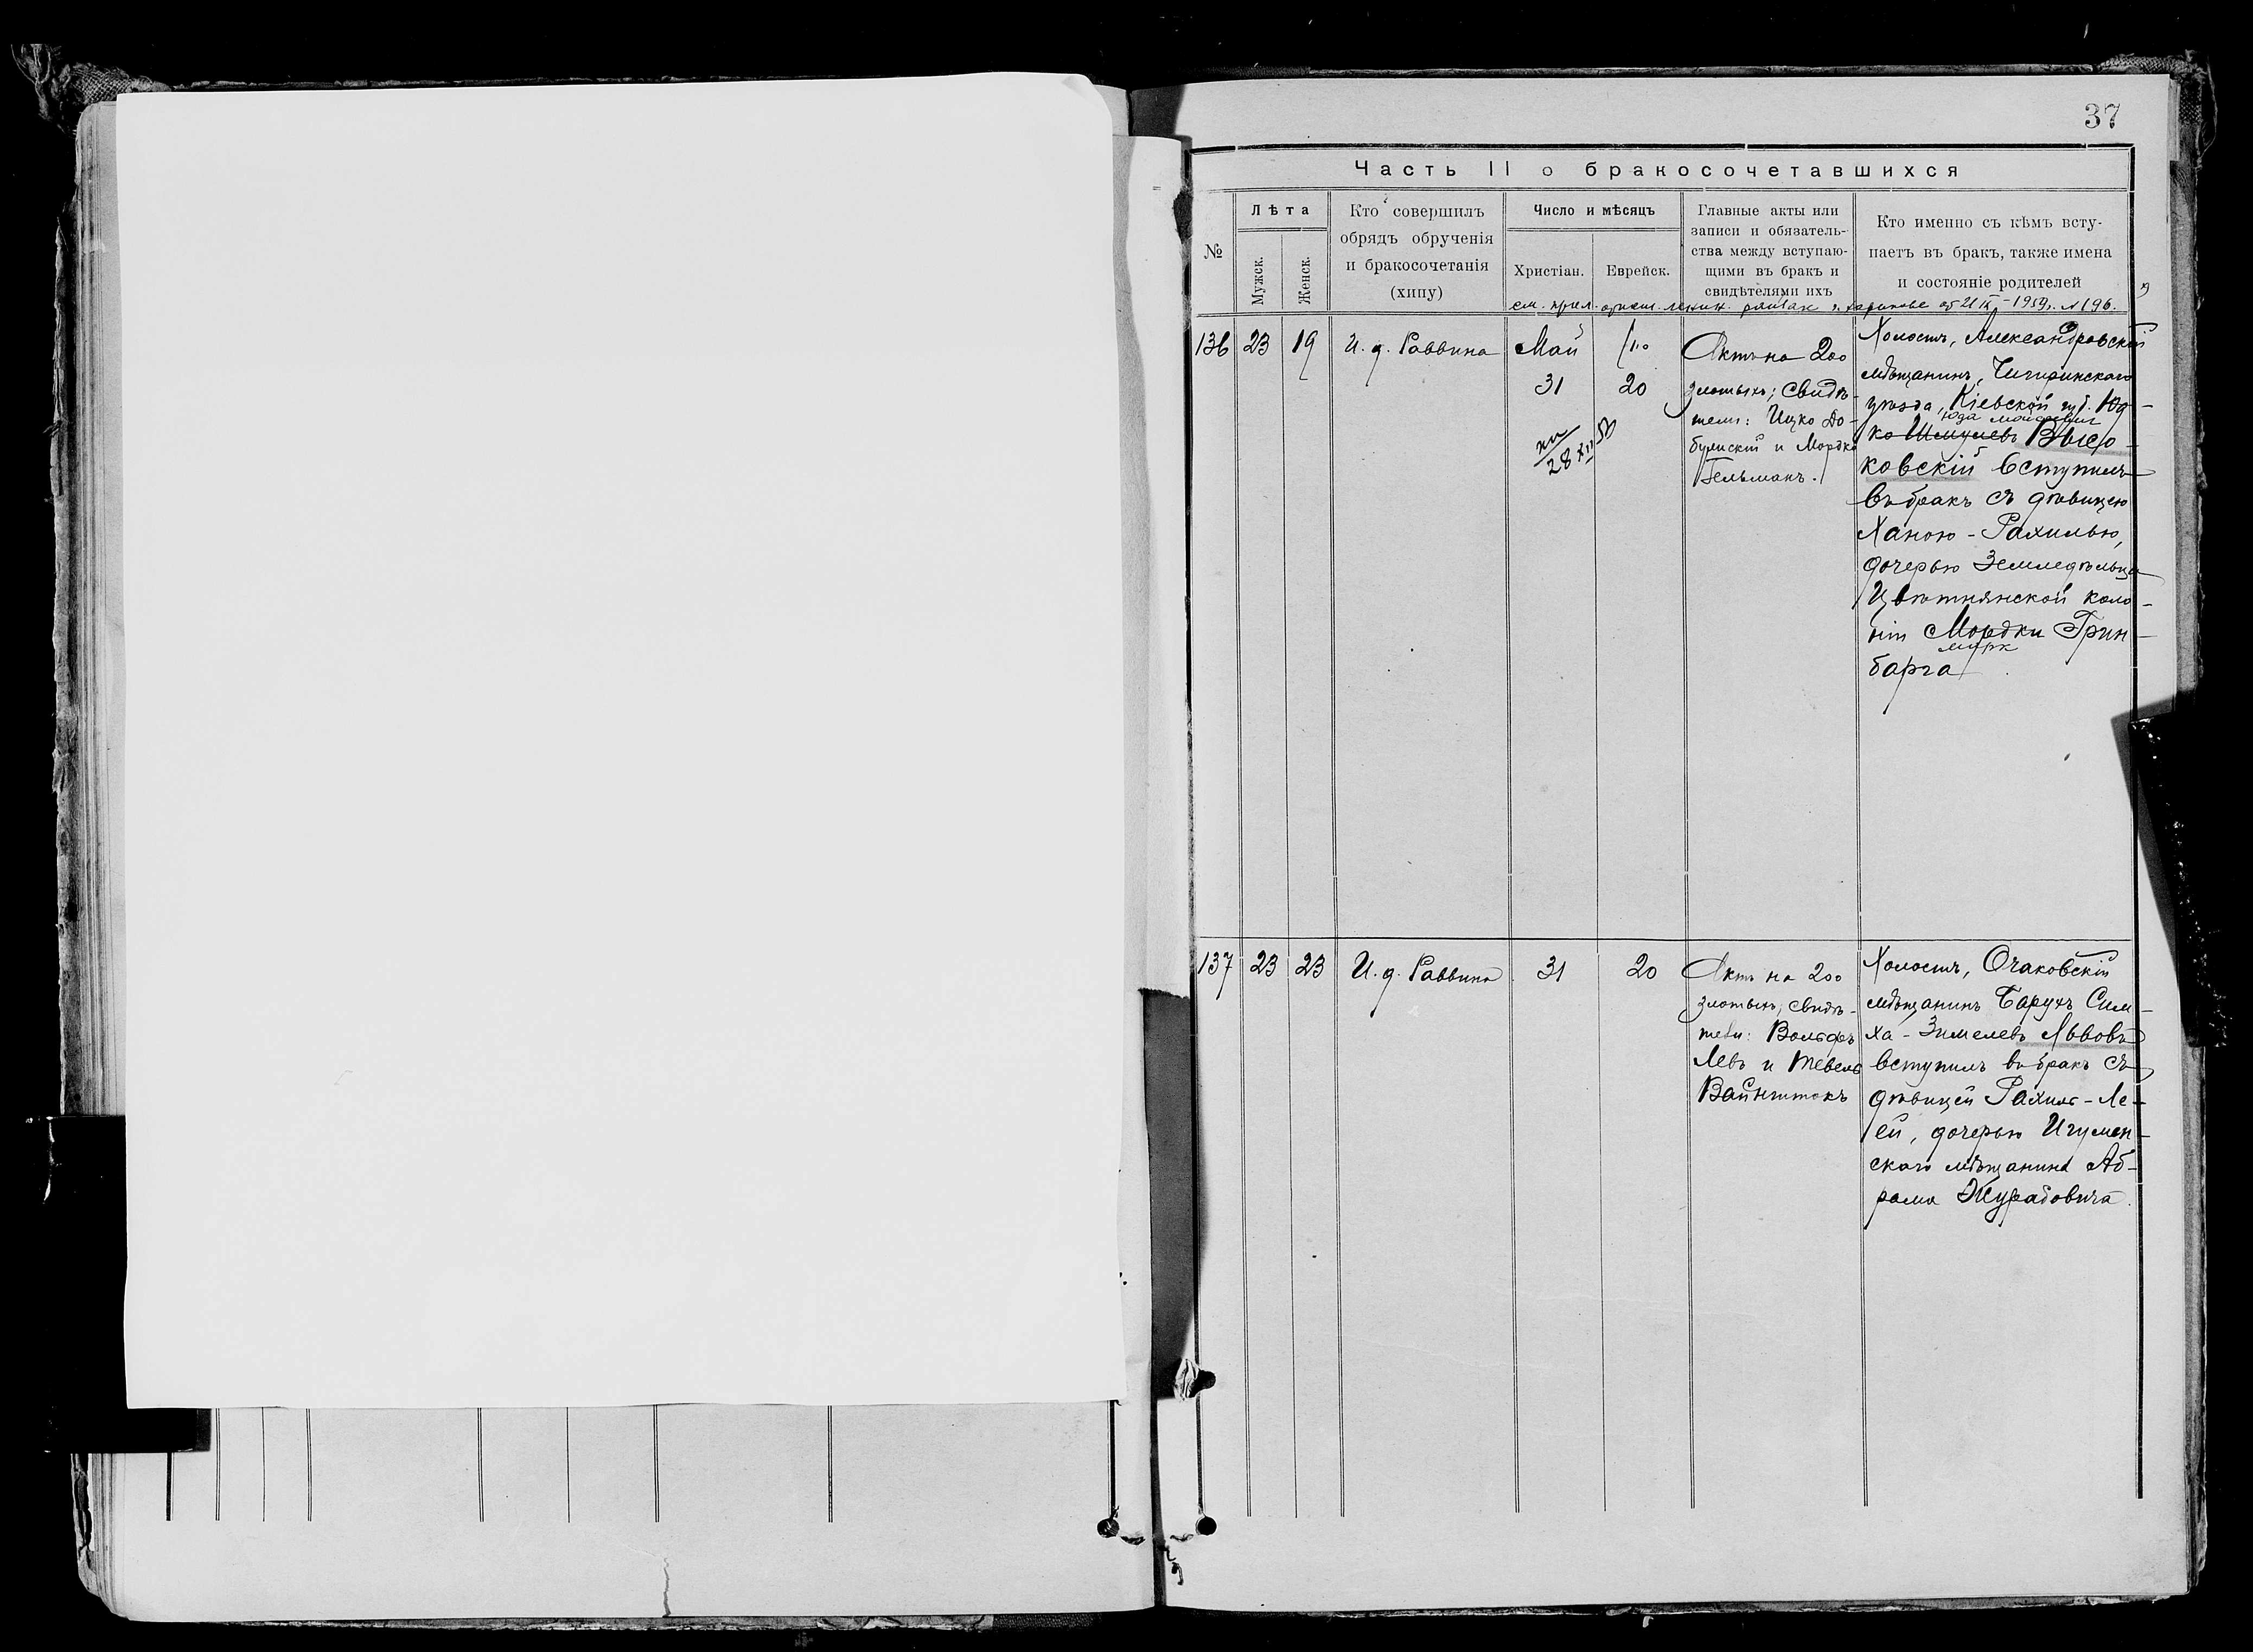 37
Часть II о бракосочетавшихся
№
Лѣта
Мужск.
Женск.
Кто совершилъ
обрядъ обрученія
и бракосочетанія
(хипу)
Число и мѣсяцъ
Христіан.
Еврейск.
Главные акты или
записи и обязатель-
ства между вступаю-
щими въ бракъ и
свидѣтелями ихъ
Кто именно съ кѣмъ всту-
паетъ въ бракъ, также имена
и состояніе родителей
см. прил. 1959 г. № 196.
136
23
19
И. д. Раввина
Май
31
20
28 XII 59
Актъ на 200
злотыхъ; свидѣ-
тели: Ицко До-
булискій и Мордко
Гельманъ.
Холостъ, Александровскій
мѣщанинъ, Чигиринскаго
уѣзда, Кіевской губ. Юд-
Юда
ко Шмулевъ Высо-
ковскій вступилъ
въ бракъ съ дѣвицею
Ханою-Рахилью,
дочерью Земледѣльца
Цвѣтнянской коло-
ніи Мордки Грин-
марк
барга
137
23
23
И. д. Раввина
31
20
Актъ на 200
злотыхъ; свидѣ-
тели: Вольфъ
Левъ и Тевель
Вайнштокъ
Холостъ, Очаковскій
мѣщанинъ Барухъ Сим-
ха-Зимелевъ Львовъ
вступилъ въ бракъ съ
дѣвицей Рахиль-Ле-
ей, дочерью Игумен-
скаго мѣщанина Аб-
рама Журабовича.